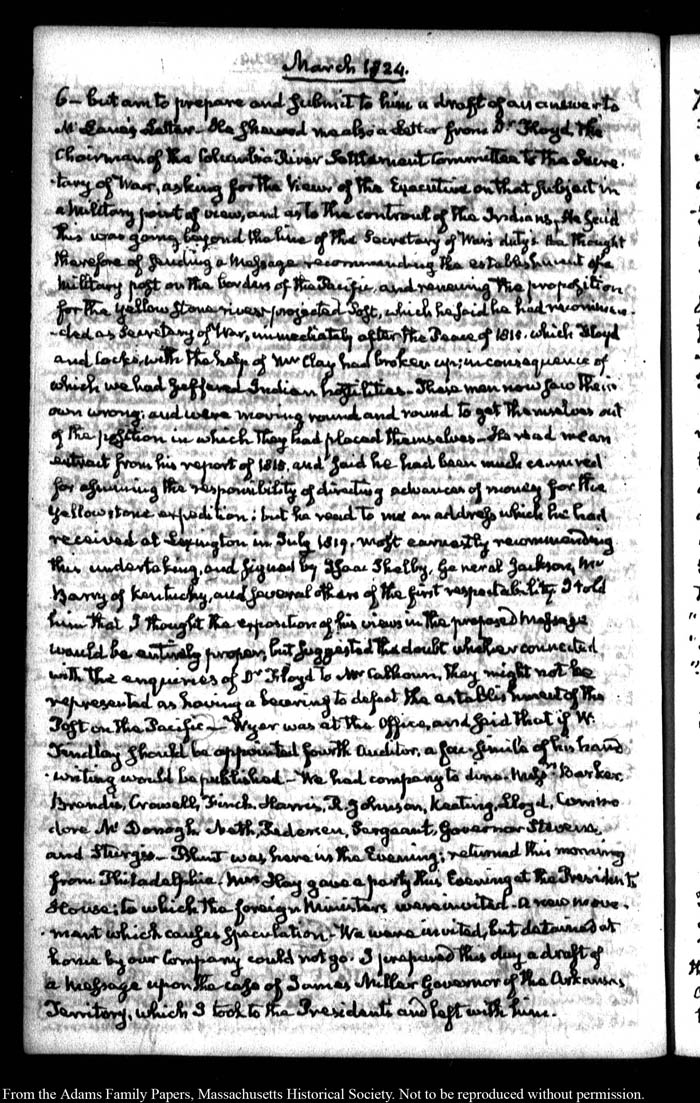 March 1824.
6 — but am to prepare and submit to him a draft of an answer to
Mr Lane's Letter — He shewed me also a Letter from Dr Floyd, the
Chairman of the Columbia River Settlement Committee to the Secre-
tary of War, asking for the Views of the Executive on that subject in
a Military point of view, and as to the controul of the Indians. He said
this was going beyond the line of the Secretary of War's duty. He thought
therefore of sending a Message recommending the establishment of a
Military post on the borders of the Pacific, and renewing the proposition
for the Yellow Stone river projected Post, which he said he had recommen-
-ded as Secretary of War, immediately after the Peace of 1815. which Floyd
and Cocke, with the help of Mr Clay had broken up; in consequence of
which we had suffered Indian hostilities. These men now saw their
own wrong; and were moving round and round to get themselves out
of the position in which they had placed themselves — He read me an
extract from his report of 1815, and said he had been much censured
for assuming the responsibility of directing advances of money for the
Yellowstone expedition; but he read to me an address which he had
received at Lexington in July 1819. most earnestly recommending
this undertaking, and signed by Isaac Shelby, General Jackson, Mr
Barry of Kentucky, and several others of the first respectability. I told
him that I thought the exposition of his views in the proposed Message
would be entirely proper, but suggested the doubt whether connected
with the enquiries of Dr Floyd to Mr Calhoun, they might not be
represented as having a bearing to defeat the establishment of the
Post on the Pacific — Wyer was at the Office, and said that if W.
Findlay should be appointed fourth Auditor, a fac-simile of his hand
-writing would be published — We had company to dine. Messrs Barker,
Brandis, Crowell, Finch, Harris, R. Johnson, Keating, Lloyd, Commo
dore McDonogh, Neth, Pedersen, Sergeant, Governor Stevens,
and Sturgis — Blunt was here in the Evening; returned this morning
from Philadelphia. Mrs Hay gave a party this Evening at the President's
House; to which the foreign Ministers were invited. A new move-
-ment which causes speculation. We were invited, but detained at
home by our Company could not go. I prepared this day a draft of
a Message upon the case of James Miller Governor of the Arkansas
Territory, which I took to the President's and left with him.
From the Adams Family Papers, Massachusetts Historical Society. Not to be reproduced without permission.